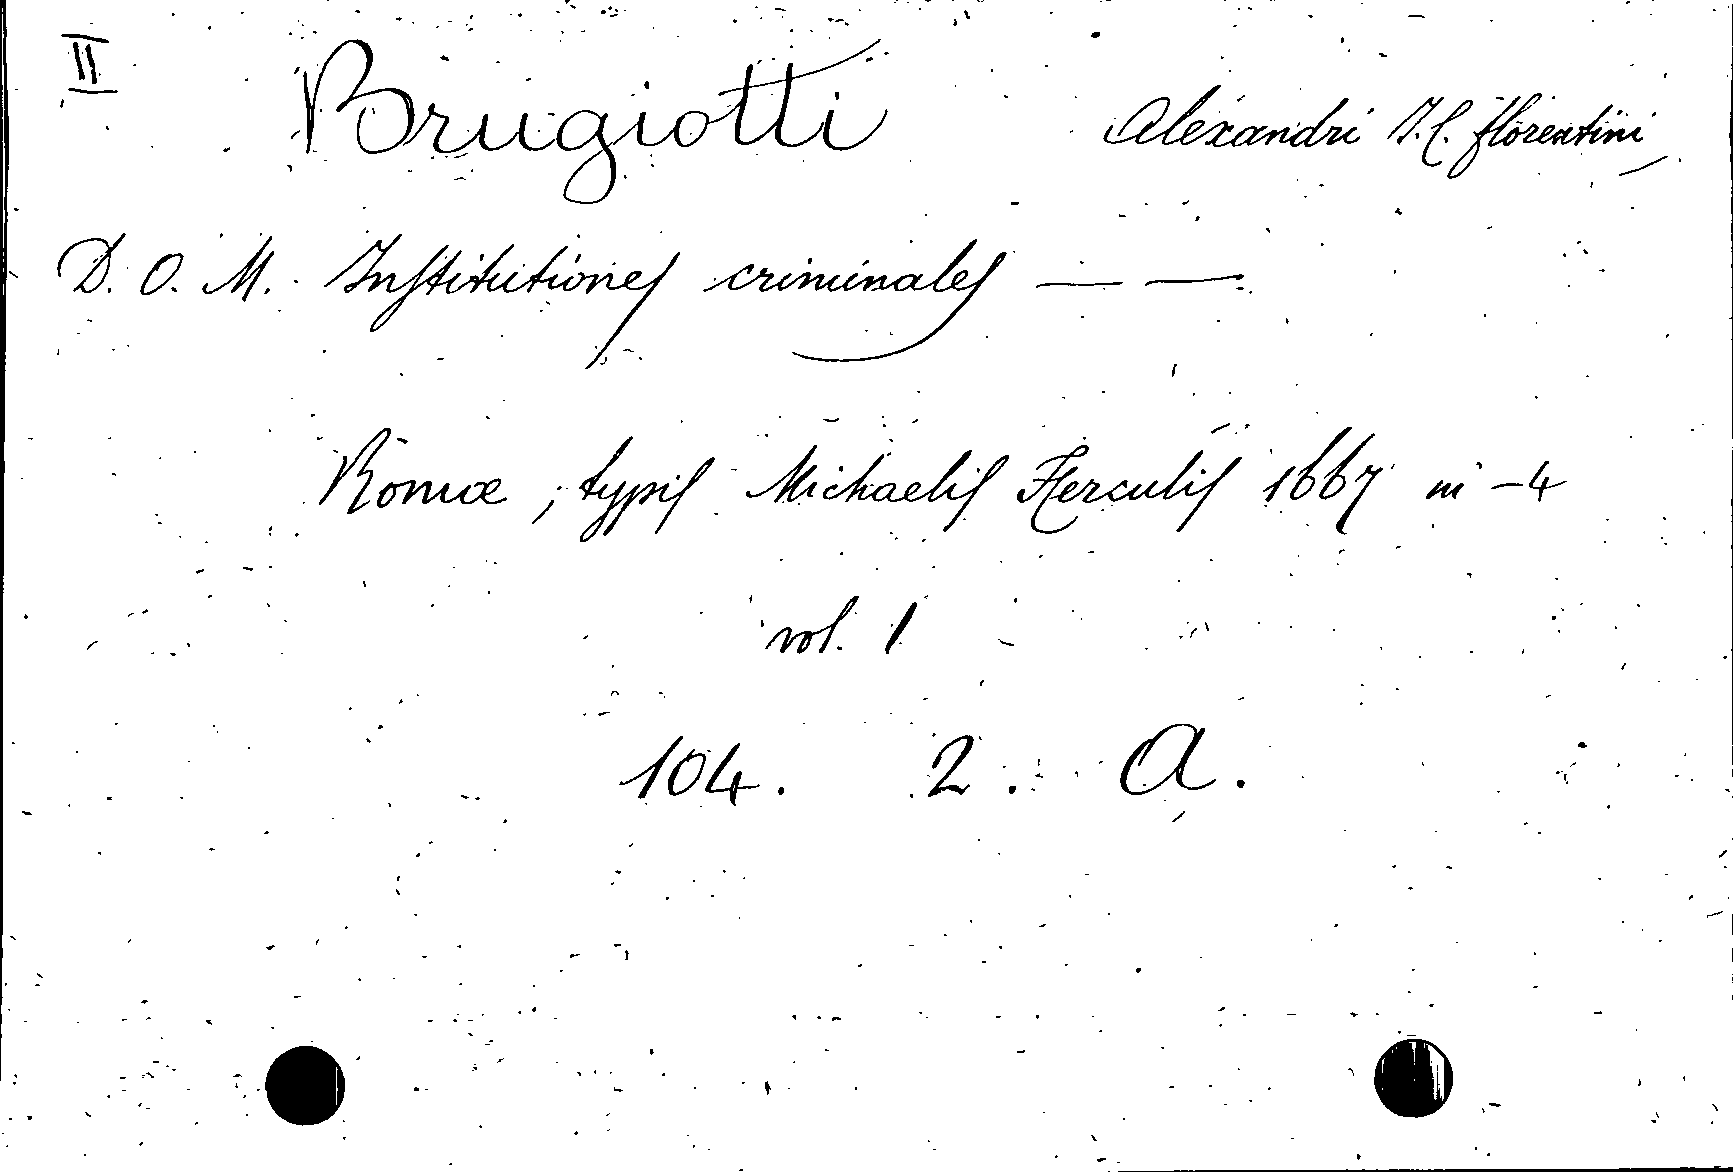 II Brugiotti Alexandri J. C. florentini
D. O. M. Institutiones criminales — —
Romæ, typis Michaelis Herculis 1667 in -4
vol. 1
104. 2. A.